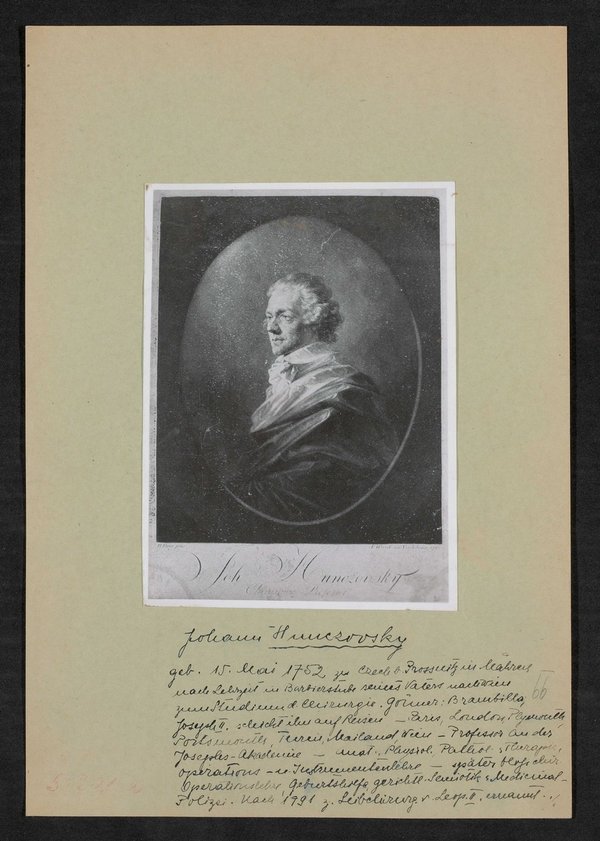 Joh Hunczovsky
Johann Hunczovsky
geb. 15. Mai 1752 zu Czech b. Prossnitz in Mähren
nach Lehrzeit in Barbierstube seines Vaters nach Wien
66
zum Studium d. Chirurgie. Gönner: Brambilla,
Joseph II. schickt ihn auf Reisen – Paris, London, Plymouth,
Portsmouth, Turin, Mailand Wien – Professor an der
Josephs-Akademie – nat. Physiol. Pathol. Therapie,
Operations- u. Instrumentenlehre – später bloss chir.
Operationslehre, Geburtshilfe, gerichtl. Medicinal-
Polizei. Nach 1791 z. Leibchirurg v. Leop. II. ernannt.